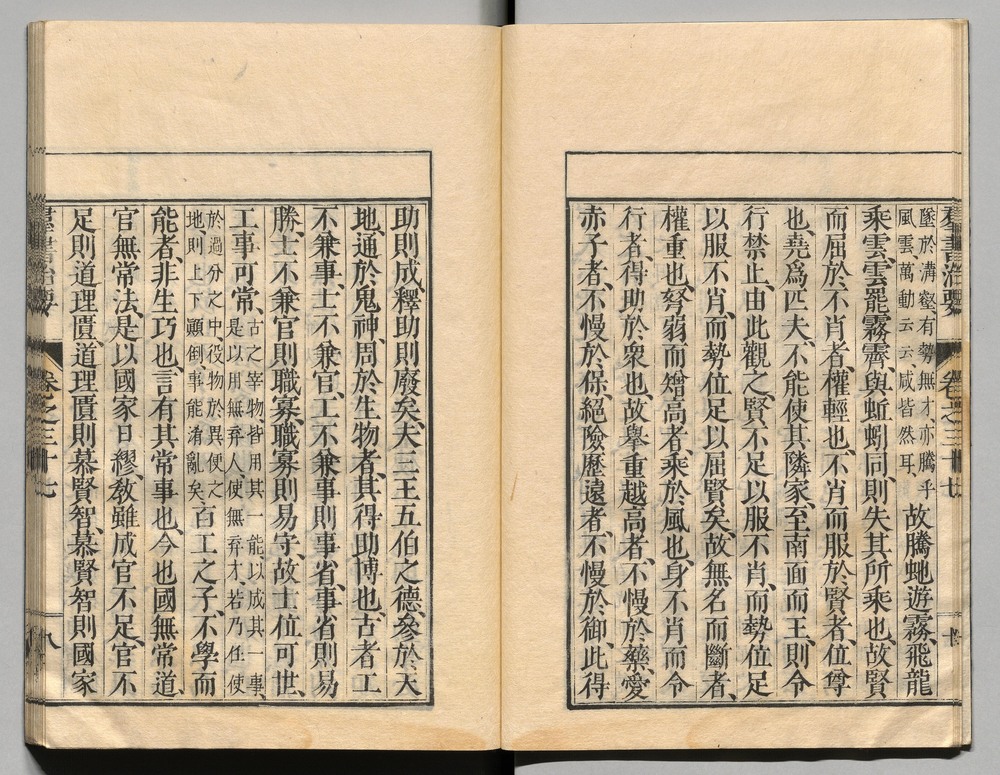 羣書治要 卷之三十七
墜於溝壑、有勢無才亦騰乎
風雲、萬動云云、咸皆然耳、故騰虵遊霧、飛龍
乘雲、雲罷霧霽、與蚯蚓同、則失其所乘也、故賢
而屈於不肖者、權輕也、不肖而服於賢者、位尊
也、堯爲匹夫、不能使其隣家、至南面而王、則令
行禁止、由此觀之、賢不足以服不肖、而勢位足
以服不肖、而勢位足以屈賢矣、故無名而斷者、
權重也、弩弱而矰高者、乘於風也、身不肖而令
行者、得助於衆也、故舉重越高者、不慢於藥、愛
赤子者、不慢於保、絕險歷遠者、不慢於御、此得
助則成、釋助則廢矣、夫三王五伯之德、參於天
地、通於鬼神、周於生物者、其得助博也、古者工
不兼事、士不兼官、工不兼事則事省、事省則易
勝、士不兼官則職寡、職寡則易守、故士位可世、
工事可常、古之宰物皆用其一能、以成其一事、
是以用無弃人、使無弃才、若乃任使
於過分之中、役物於異便之
地、則上下顚倒、事能淆亂矣、百工之子、不學而
能者、非生巧也、言有其常事也、今也國無常道、
官無常法、是以國家日繆、敎雖成官不足、官不
足則道理匱、道理匱則慕賢智、慕賢智則國家
羣書治要 卷之三十七 八